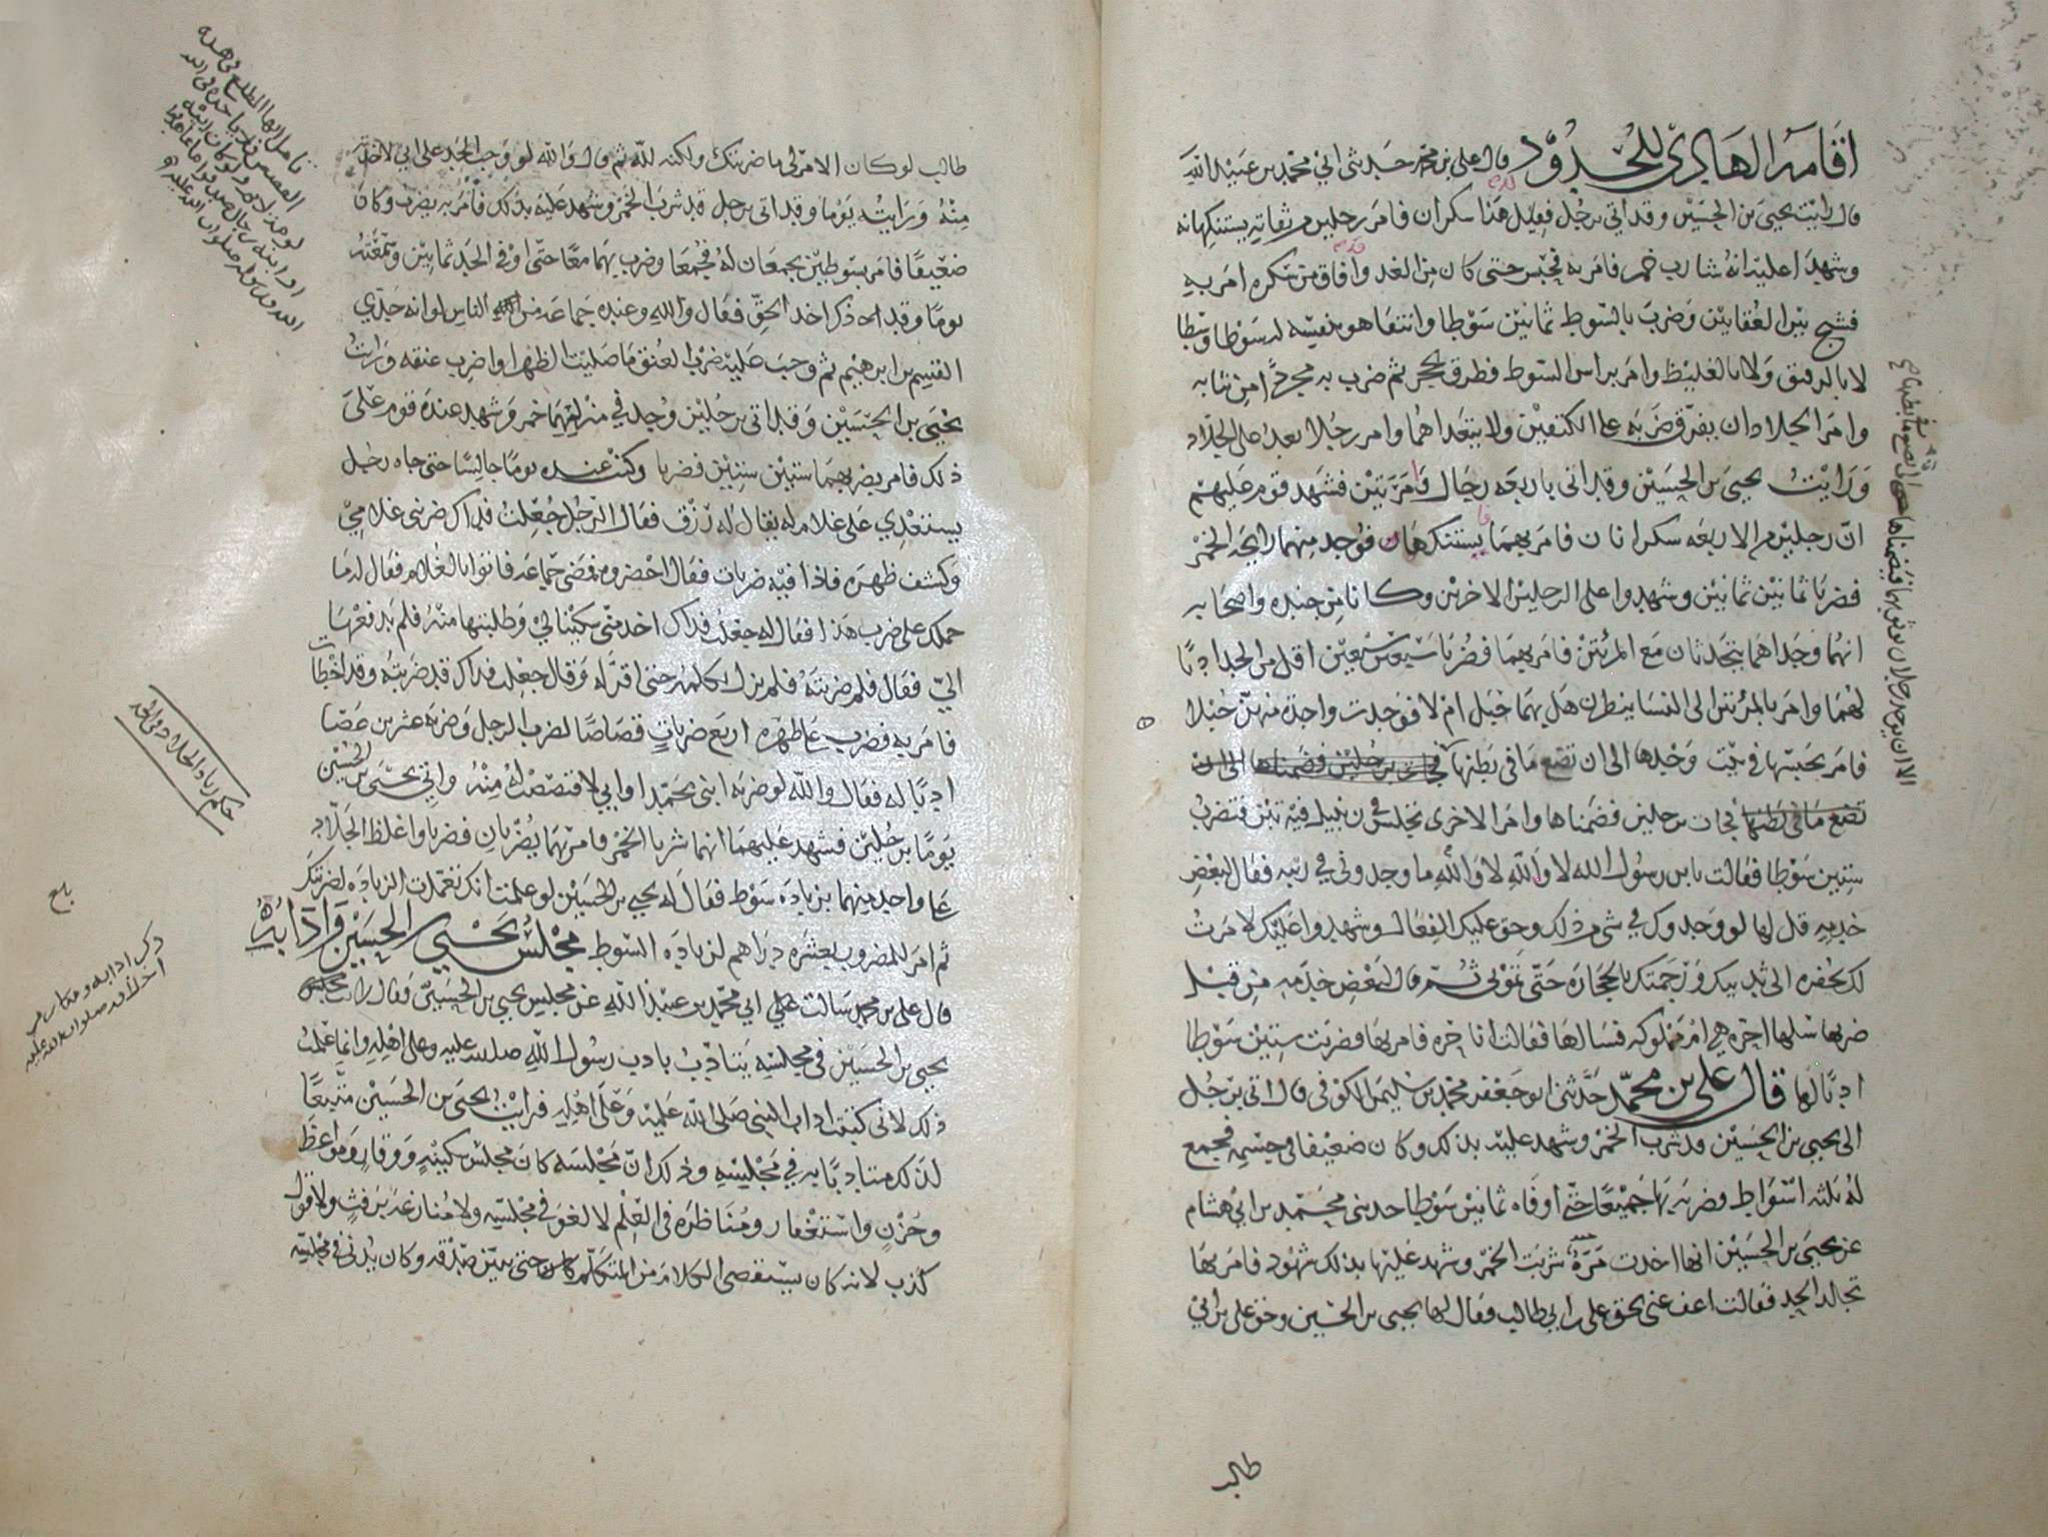 اقامة الهادي للحدود قال علي بن محمد حدثني ابي محمد بن عبيد الله
قال رايت يحيى بن الحسين وقد اتي برجل فقيل هذا سكران فامر رجلين من ثقاته يستنكهانه
وشهدا عليه انه شارب خمر فامر به فحبس حتى كان من الغد وافاق من سكره امر به
بين العقابين وضرب بالسوط ثمانين سوطا وانتقا هو بنفسه له سوطا وسطا
لا بالدقيق ولا بالغليظ وامر براس السوط فطرق بحجر ثم ضرب به مجردا من ثيابه
وامر الجلاد ان يفرق ضربه على الكتفين ولا يتعداهما وامر رجلا يعد على الجلاد
ورايت يحيى بن الحسين وقد اتى باربعه رجال وامرتين فشهد قوم عليهم
ان رجلين من الاربعه سكرانان فامر بهما يستنكهان فوجد منهما رايحه الخمر
فضربا ثمانين ثمانين وشهدوا على الرجلين الاخرين وكانا من جنده واصحابه
انهما وجداهما يتحدثان مع المرتين فامر بهما فضربا سبعين اقل من الحد ادبا
لهما وامر بالمرتين الى النسا ينظرن هل بهما حبل ام لا فوجدت واحده منهن حبلا
فامر بحبسها في بيت وحدها الى ان تضع ما في بطنها فجات برجلين فضمناها الى ان
تضع ما في بطنها فجات برجلين فضمناها وامر الاخرى تجلس في زنبيل فيه تبن فتضرب
ستين سوطا فقالت يابن رسول الله لا والله لا والله ما وجدوني في ريبه فقال لبعض
خدمه قل لها لو وجدوك في شي من ذلك وحق عليك الفعال وشهدوا عليك لامرت
لك بحفره الى ثدييك ورجمتك بالحجاره حتى تموتي ثم قال لبعض خدمه من قبل
ضربها سلها احره هي ام مملوكه فسالها فقالت انا حره فامر بها فضربت ستين سوطا
ادبا لها قال علي بن محمد حدثني ابو جعفر محمد بن سليمن الكوفي قال اتي برجل
الى يحيى بن الحسين قد شرب الخمر وشهد عليه بذلك وكان ضعيفا في جسمه فجمع
له ثلثه اسواط وضربه بها جميعا حتى اوفاه ثمانين سوطا حدثني محمد بن ابي هشام
عن يحيى بن الحسين انها اخذت مره شربت الخمر وشهد عليها بذلك شهود فامر بها
تجالد الحد فقالت اعف عني بحق علي بن ابي طالب فقال لها يحيى بن الحسين وحق علي بن ابي
طالب
طالب لو كان الامر لي ما ضربتك ولكنه لله ثم قال والله لو وجب الحد على ابي لاخذته
منه ورايته يوما وقد اتى برجل قد شرب الخمر وشهد عليه بذلك فامر به يضرب وكان
ضعيفا فامر بسوطين يجمعان له فجمعا وضرب بهما معا حتى اوفي الحد ثمانين وسمعته
يوما وقد ذكر اخذ الحق فقال والله وعنده جماعه من الناس لو انه جدي
القسم بن ابرهيم ثم وجب عليه ضرب العنق ما صليت الظهر او اضرب عنقه ورايت
يحيى بن الحسين وقد اتى برجلين وجد في منزليهما خمر وشهد عنده قوم على
ذلك فامر بضربهما ستين ستين فضربا وكنت عنده يوما جالسا حتى جاه رجل
يستعدي على غلام له يقال له رزق فقال الرجل جعلت فداك ضربني غلامي
وكشف ظهره فاذا فيه ضربات فقال احضروه فمضى جماعه فاتوا بالغلام فقال له ما
حملك على ضرب هذا فقال له جعلت فداك اخذ مني سكينا لي وطلبتها منه فلم يدفعها
الي فقال فلم ضربته فلم يزل يكلمه حتى اقر له وقال جعلت فداك قد ضربته وقد اخطات
فامر به فضرب على ظهره اربع ضربات قصاصا لضرب الرجل وضربه عشرين عصا
ادبا له فقال والله لو ضربه ابني محمد او ابي لاقتصصت له منه واتي يحيى بن الحسين
يوما برجلين فشهد عليهما انهما شربا الخمر فامر بهما يضربان فضربا واغلظ الجلاد
على واحد منهما بزياده سوط فقال له يحيى بن الحسين لو علمت انك تعمدت الزياده لضربتك
ثم امر للمضروب بعشره دراهم لزياده السوط مجلس يحيى بن الحسين وادابه
قال علي بن محمد سالت ابي محمد بن عبيد الله عن مجلس يحيى بن الحسين فقال رايت مجلس
يحيى بن الحسين في مجلسه يتادب بادب رسول الله صلى الله عليه وعلى اهله وانما علمت
ذلك لاني كتبت اداب النبي صلى الله عليه وعلى اهله فرايت يحيى بن الحسين متبعا
لذلك متادبا به في مجلسه وذلك ان مجلسه كان مجلس سكينه ووقار ومواعظ
وحزن واستغفار ومناظره في العلم لا لغو في مجلسه ولا منازعه برفث ولا قول
كذب لانه كان يستقصي الكلام من المتكلم حتى يبين صدقه وكان يدني في مجلسه
حكم زياد الجلاد في الحد
ذكر ادابه ومكارم
اخلاقه صلوات الله عليه